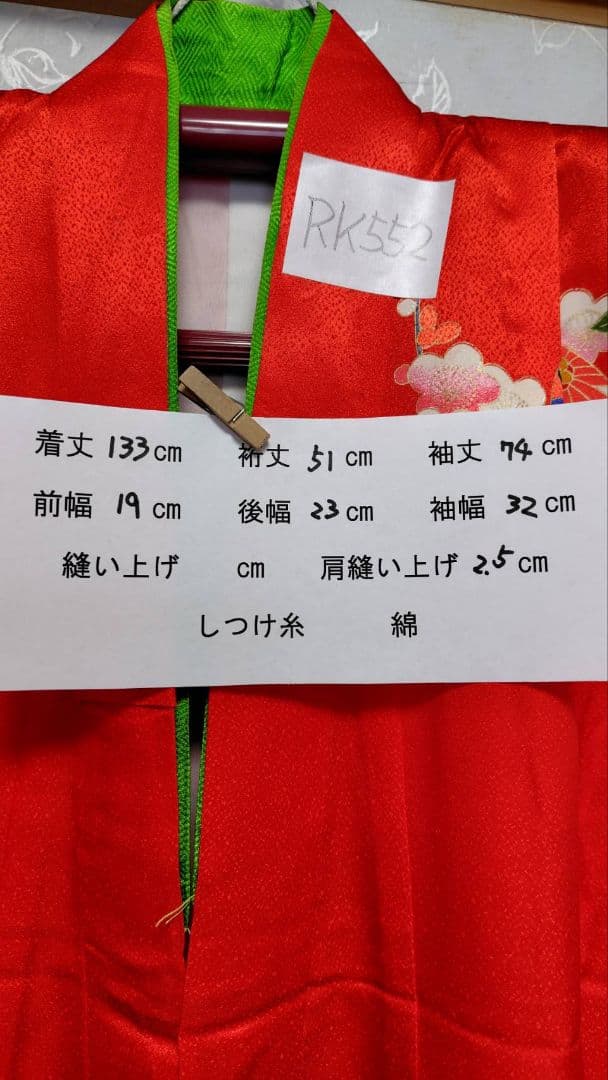 RK552
着丈 133cm 裄丈 51cm 袖丈 74cm
前幅 19cm 後幅 23cm 袖幅 32cm
縫い上げ cm 肩縫い上げ 2.5cm
しつけ糸 綿